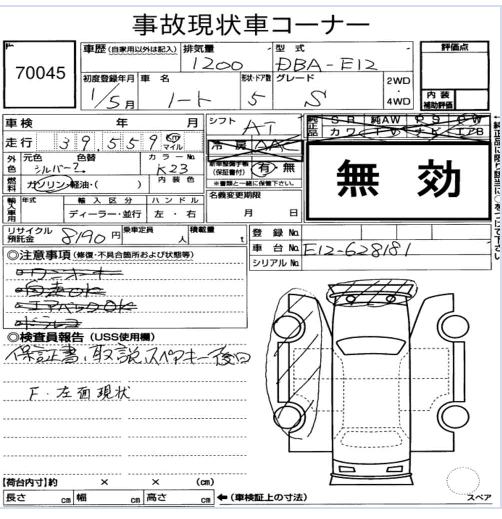 事故現状車コーナー
70045
車歴(自家用以外は記入) 排気量 型式 評価点
1200 DBA-E12
初度登録年月 車名 形状・ドア数 グレード
1/5月 ノート 5 S 2WD・4WD
内装補助評価
車検 年 月 シフト AT
純正品 SR 純AW PS PW
カワ TV ナビ エアB
走行 39,559 km マイル 冷房 AAC
外色 元色 色替 カラーNo.
シルバー2 K23
(保証書付) 有・無
※書類と一緒に保管下さい。
燃料 ガソリン・軽油・( ) 内装色
無効
輸入車用 年式 輸入区分 ハンドル
ディーラー・並行 左・右
名義変更期限
月 日
リサイクル預託金 8190円 乗車定員 人 積載量 t
登録No.
車台No. E12-628181
シリアルNo.
◎注意事項(修復・不具合箇所および状態等)
ワンオーナー
エアバックOK
◎検査員報告(USS使用欄)
保証書、取説、スペアキー後日
F・左面現状
【荷台内寸】約 × × (cm)
長さ cm 幅 cm 高さ cm ←(車検証上の寸法)
スペア
←純正品に限り該当に○をつけて下さい